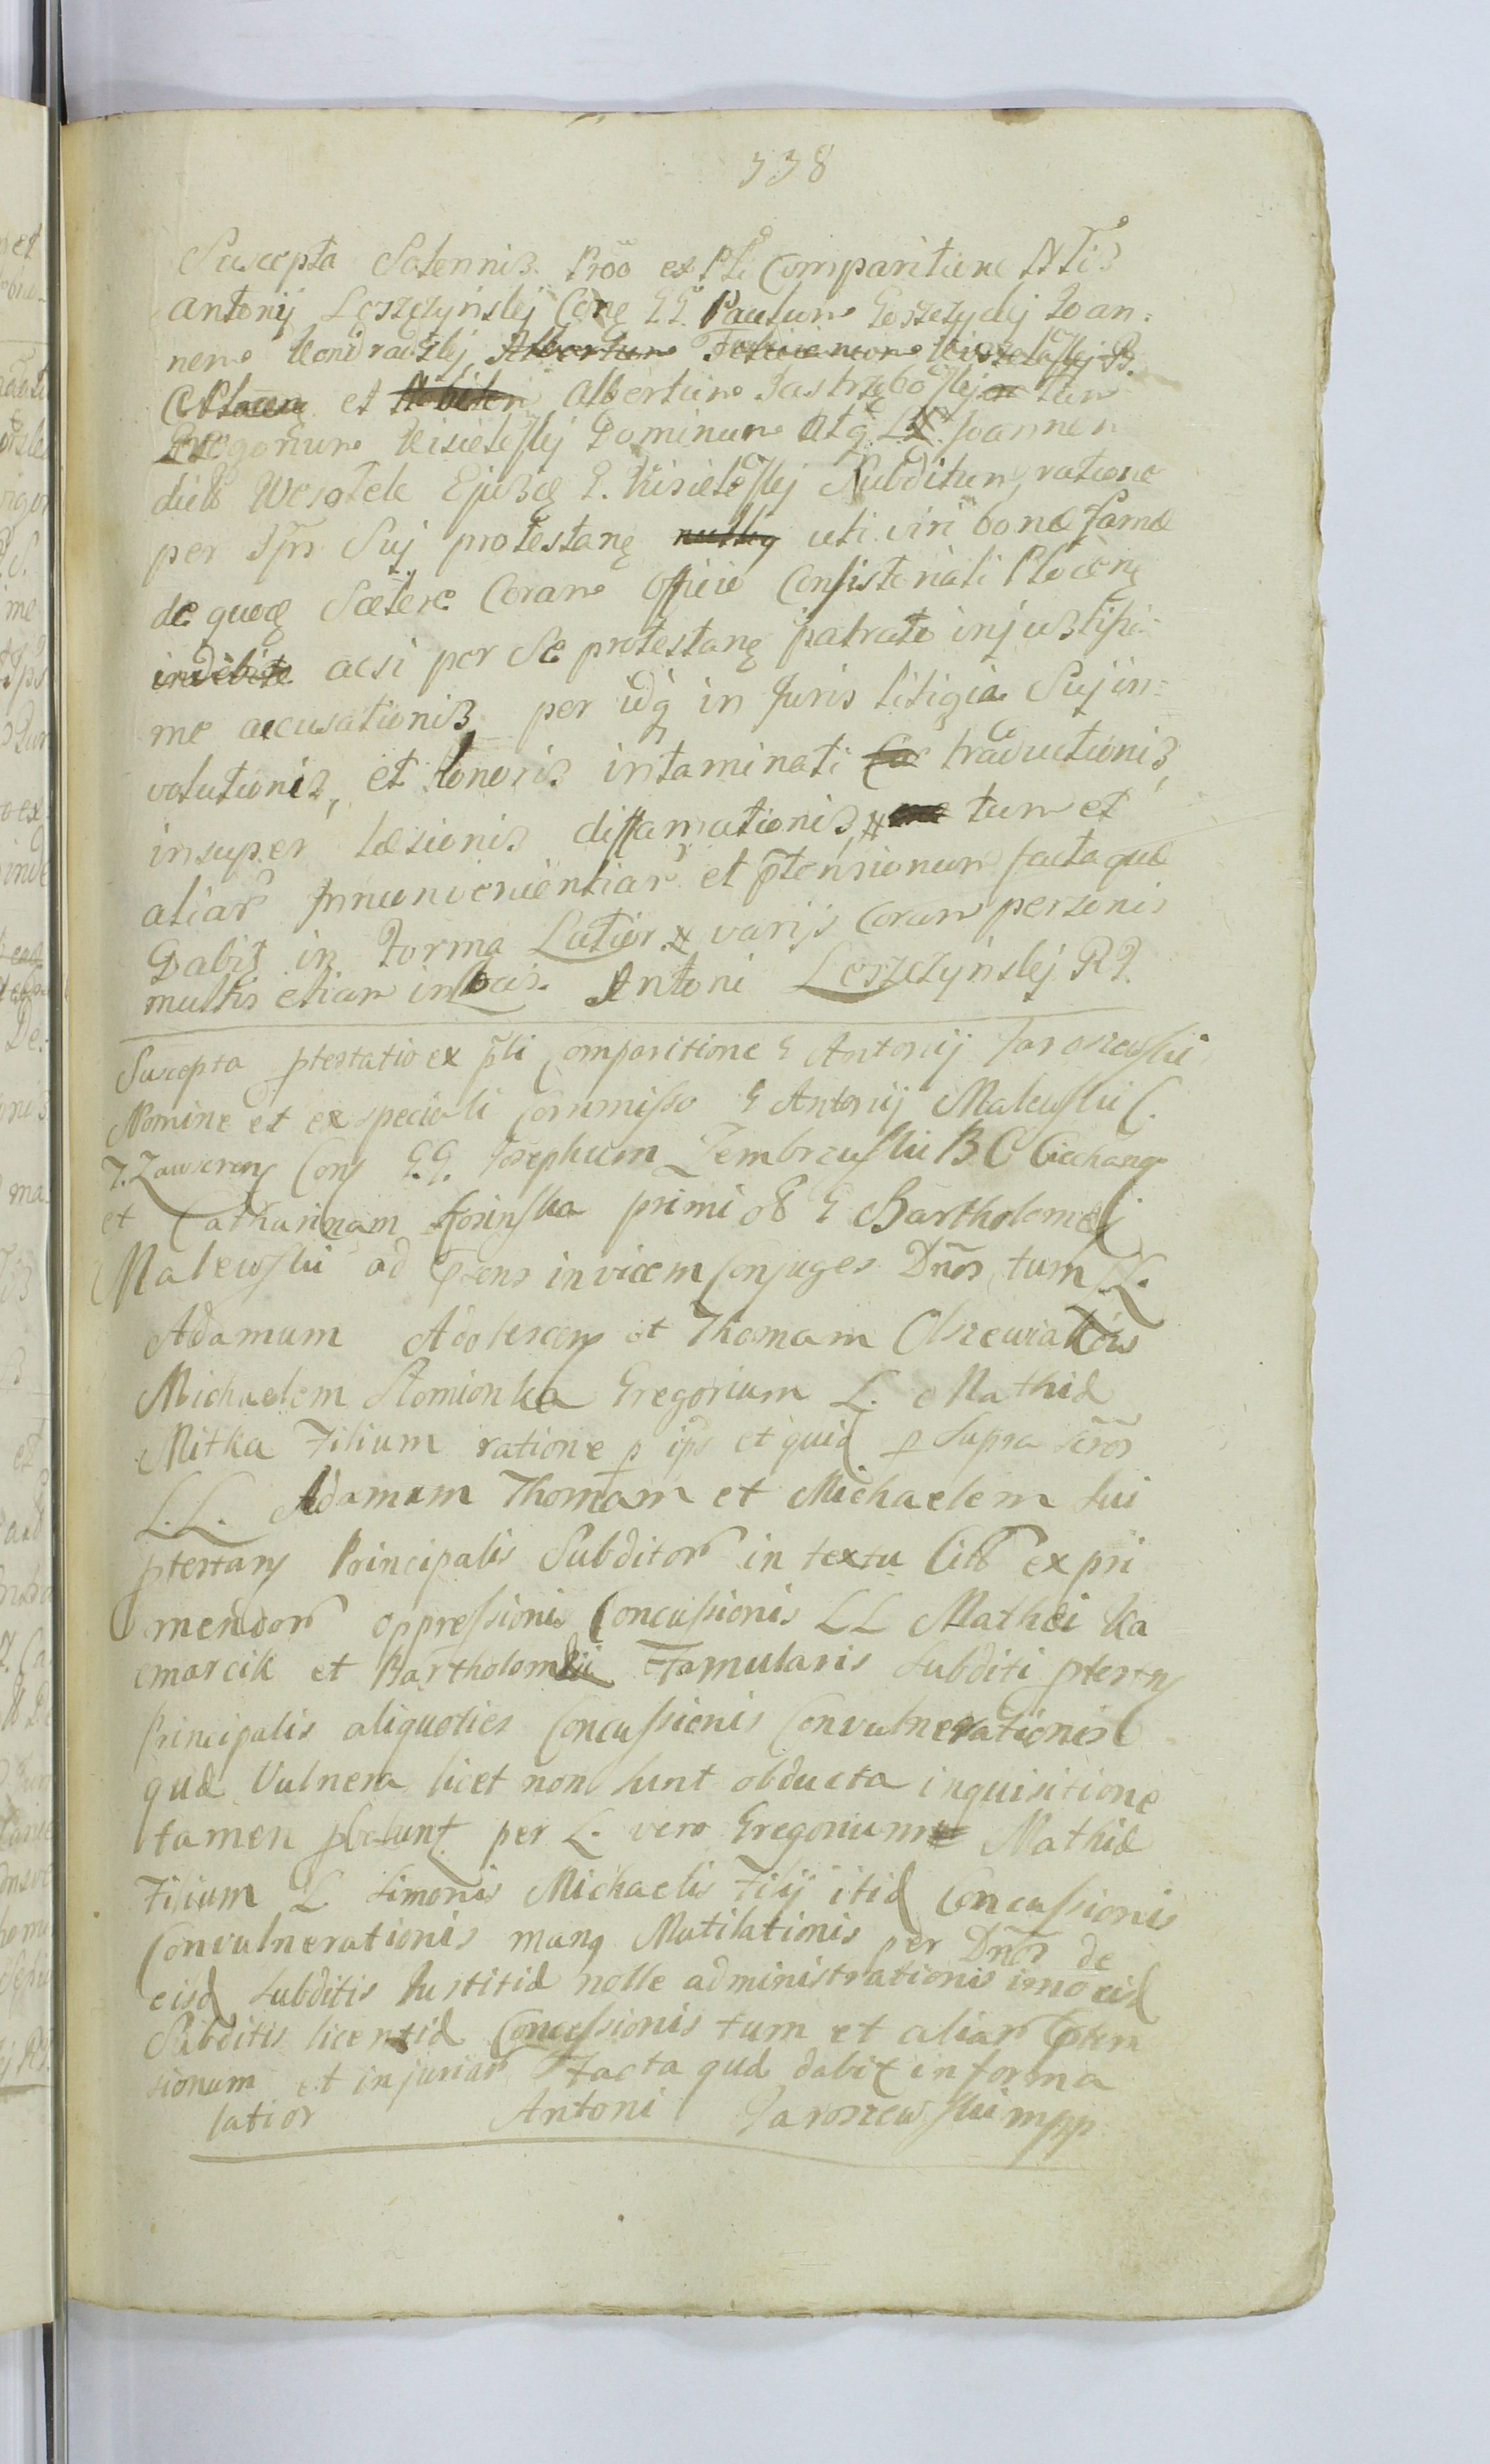 338
Suscepta Solennis. Prõõ ex Pti Comparitione NTis
Antonij Leszczynskj Cone GG. Paulum Goszczyckj Joan:
nem Kondrackj Albertum Felicianum
et Nobilem Albertum Jastrzęboskj tum
Gregorium Kisieleskj Dominum atq LL Joannem
dictū Wesołek Ejusdē G. Kisieleskj Subditum, ratione
per Ipn Suj protestanę uti viri bonæ famæ
de quoq Scelere Coram Officio Consistoriali Plocenę
indebite acsi per Se protestanę patrato injustissi:
me accusationis, per idq in Juris litigia Suj in:
volutionis, et honoris intaminati traductionis,
insuper læsionis diffamationis, tum et
aliar Innconvenientiar et ptensionum facta quæ
Dabit in forma Latior. varijs coram personis
multis etiam in Locis. Antoni Leszczynskj RP.
Suscepta ptestatio ex pli Comparitione G Antonij Jaroszewski
Nomine et ex speciali Commisso G Antonij Malewski C.
T. Zawscrens Cons GG. Josephum Zembrzuski B C Ciechang
et Catharinam primi oB G Bartholomej
Malewski ad psens invicem Conjuges Dños, tum LL.
Adamum Adolescens et Thomam Olszewiakow
Michaelem Słomionka Gregorium L. Mathiæ
Mitka Filium ratione p ips et quid p supra sc̃ros
L.L. Adamum Thomam et Michaelem sui
ptestans Principalis Subditor in textu Citt expri
mendor oppressionis Concussionis LL Mathei Ka
cmarcik et Bartholomæi Famularis Subditi ptestns
Principalis aliquoties Concussionis Convulnerationis
quæ Vulnera licet non sunt obducta inquisitione
tamen pbdunt per L. vero Gregorium Mathiæ
Filium L Simonis Michaelis Filij itid Concussionis
Convulnerationis manq Mutilationis per Dños de
eisd Subditis Justitiæ nolle administrationis imo eisd
Subditis licentiæ Concessionis tum et aliar pten
sionum et injuriar Facta quæ dabit in forma
latior Antoni Jaroszewski mpp